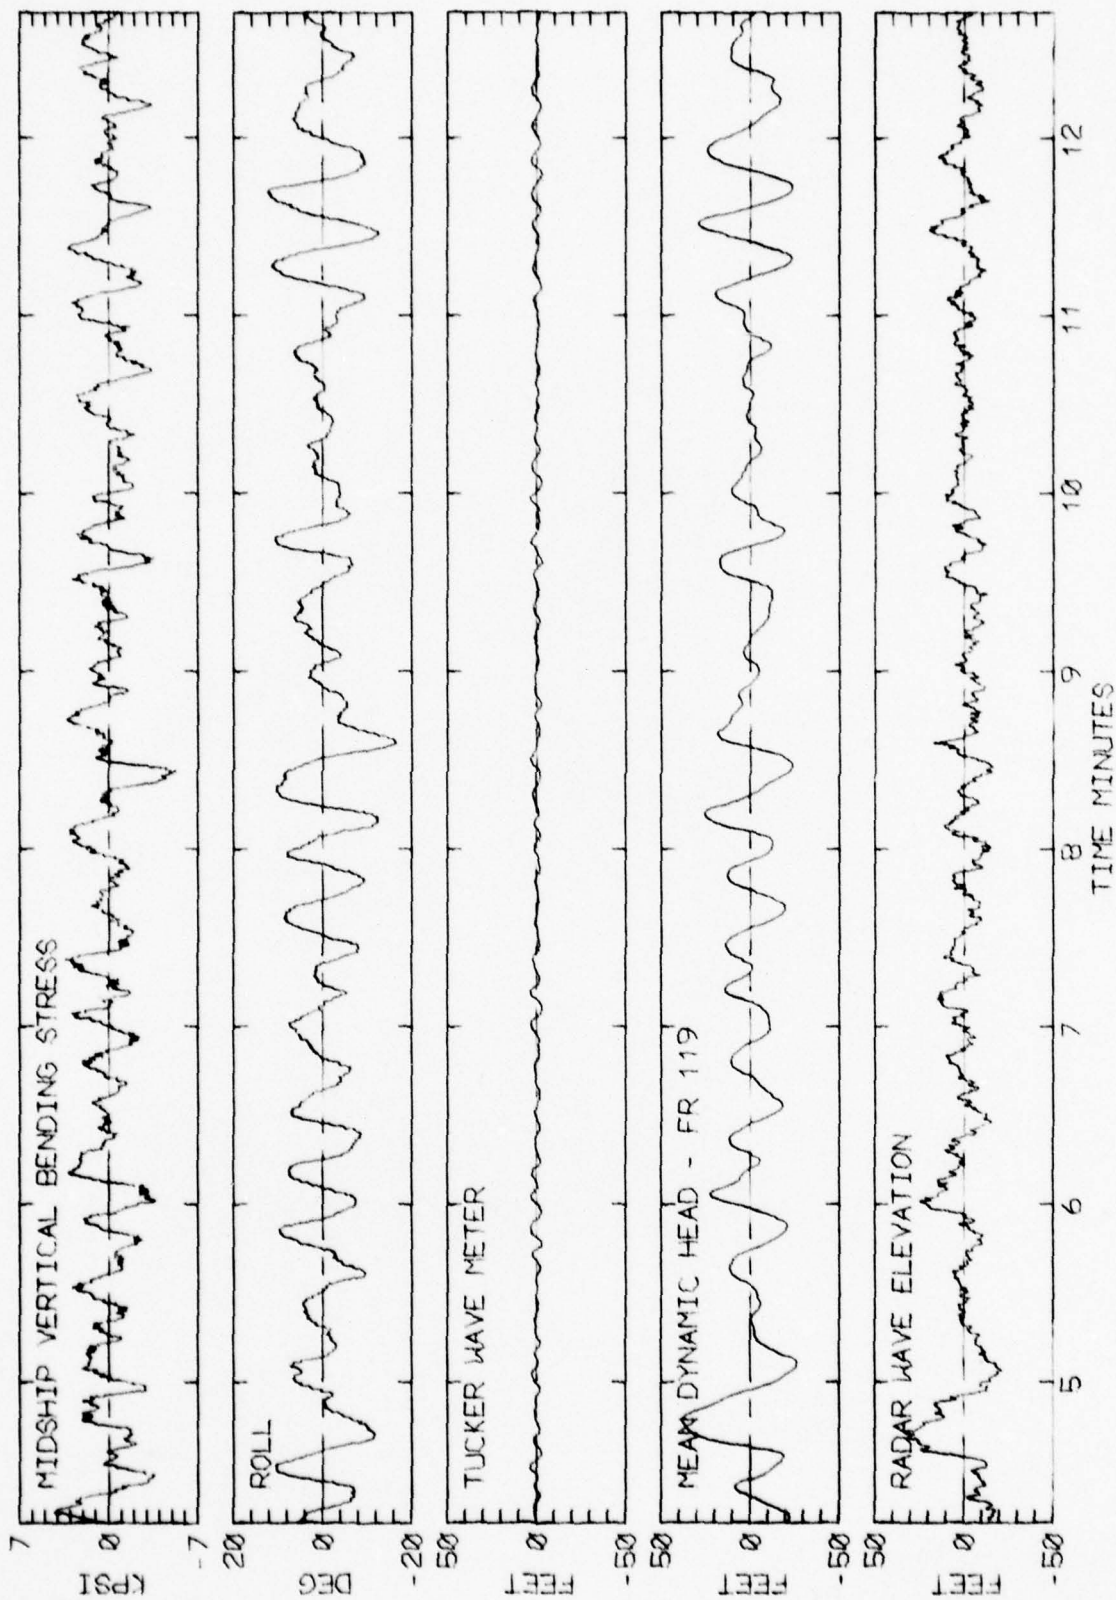 MIDSHIP VERTICAL BENDING STRESS
7
0
-7
KPSI
ROLL
20
0
-20
DEG
TUCKER WAVE METER
50
0
-50
FEET
MEAN DYNAMIC HEAD - FR 119
50
0
-50
FEET
RADAR WAVE ELEVATION
50
0
-50
FEET
5 6 7 8 9 10 11 12
TIME MINUTES